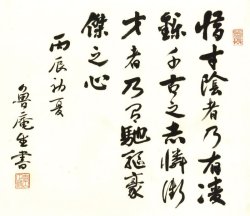 惜寸陰者乃有凌
鑠千古之志憐微
才者乃有馳驅豪
傑之心
丙辰初夏
魯庵生書